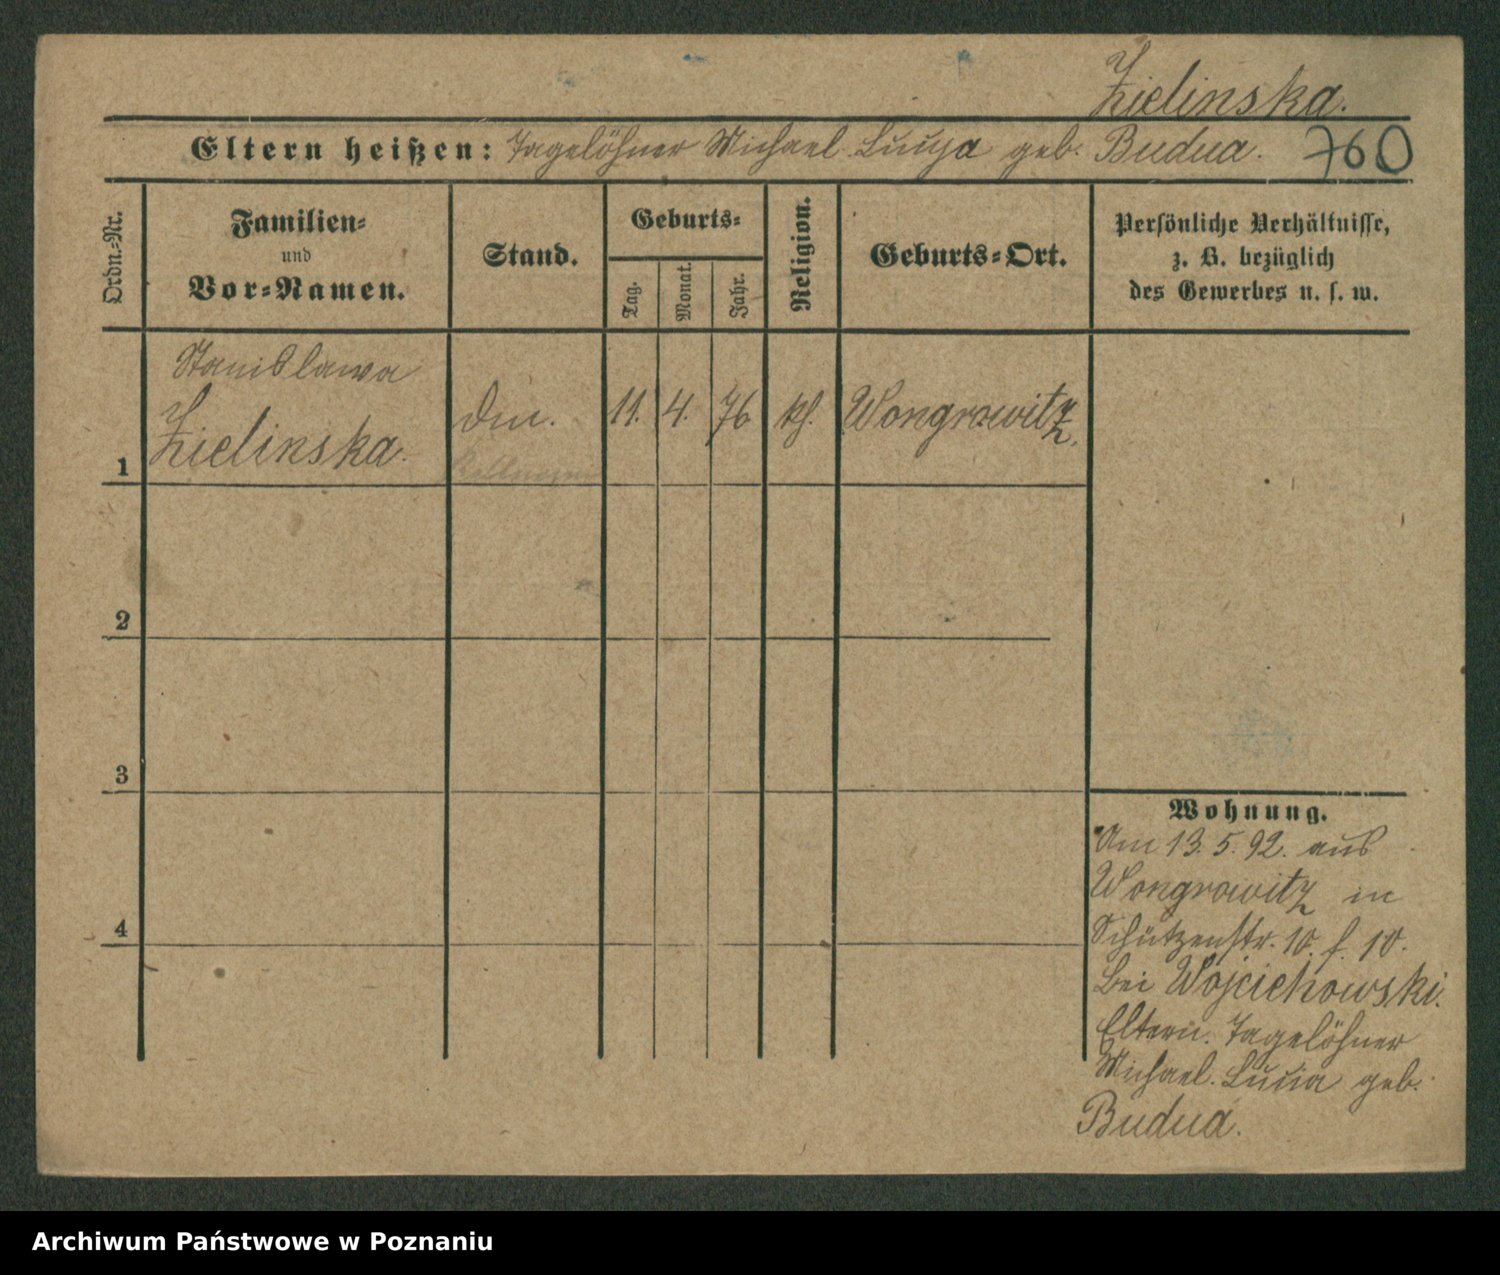 Zielinska.
Eltern heißen: Tagelöhner Michael Lucya geb. Budua. 760
Ordn.-Nr.
Familien-
und
Vor-Namen.
Stand.
Geburts-
Tag.
Monat.
Jahr.
Religion.
Geburts-Ort.
Persönliche Verhältnisse,
z. B. bezüglich
des Gewerbes u. s. w.
Stanislawa
Zielinska.
1
11. 4. 76 kh. Wongrowitz.
2
3
4
Wohnung.
Am 13. 5. 92. aus
Wongrowitz in
Schützenstr. 10. f. 10.
bei Wojciechowski.
Eltern. Tagelöhner
Michael. Lucia geb.
Budua.
Archiwum Państwowe w Poznaniu